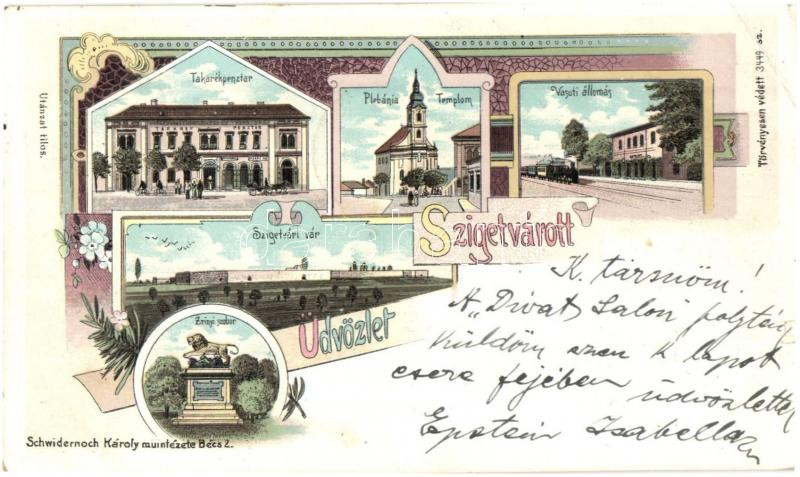 Takarékpenztár
TAKARÉK PÉNZTÁR
Plébánia Templom
Vasuti állomás
Utánzat tilos.
Törvényesen védett 3449 sz.
Szigetvári vár
Szigetvárott
Üdvözlet
Zrinyi szobor
K. társnöm!
A „Divat Salon" folytán
küldöm ezen k. lapot
csere fejében üdvözlettel
Epstein Izabella
Schwidernoch Károly muintézete Bécs 2.
darabanth